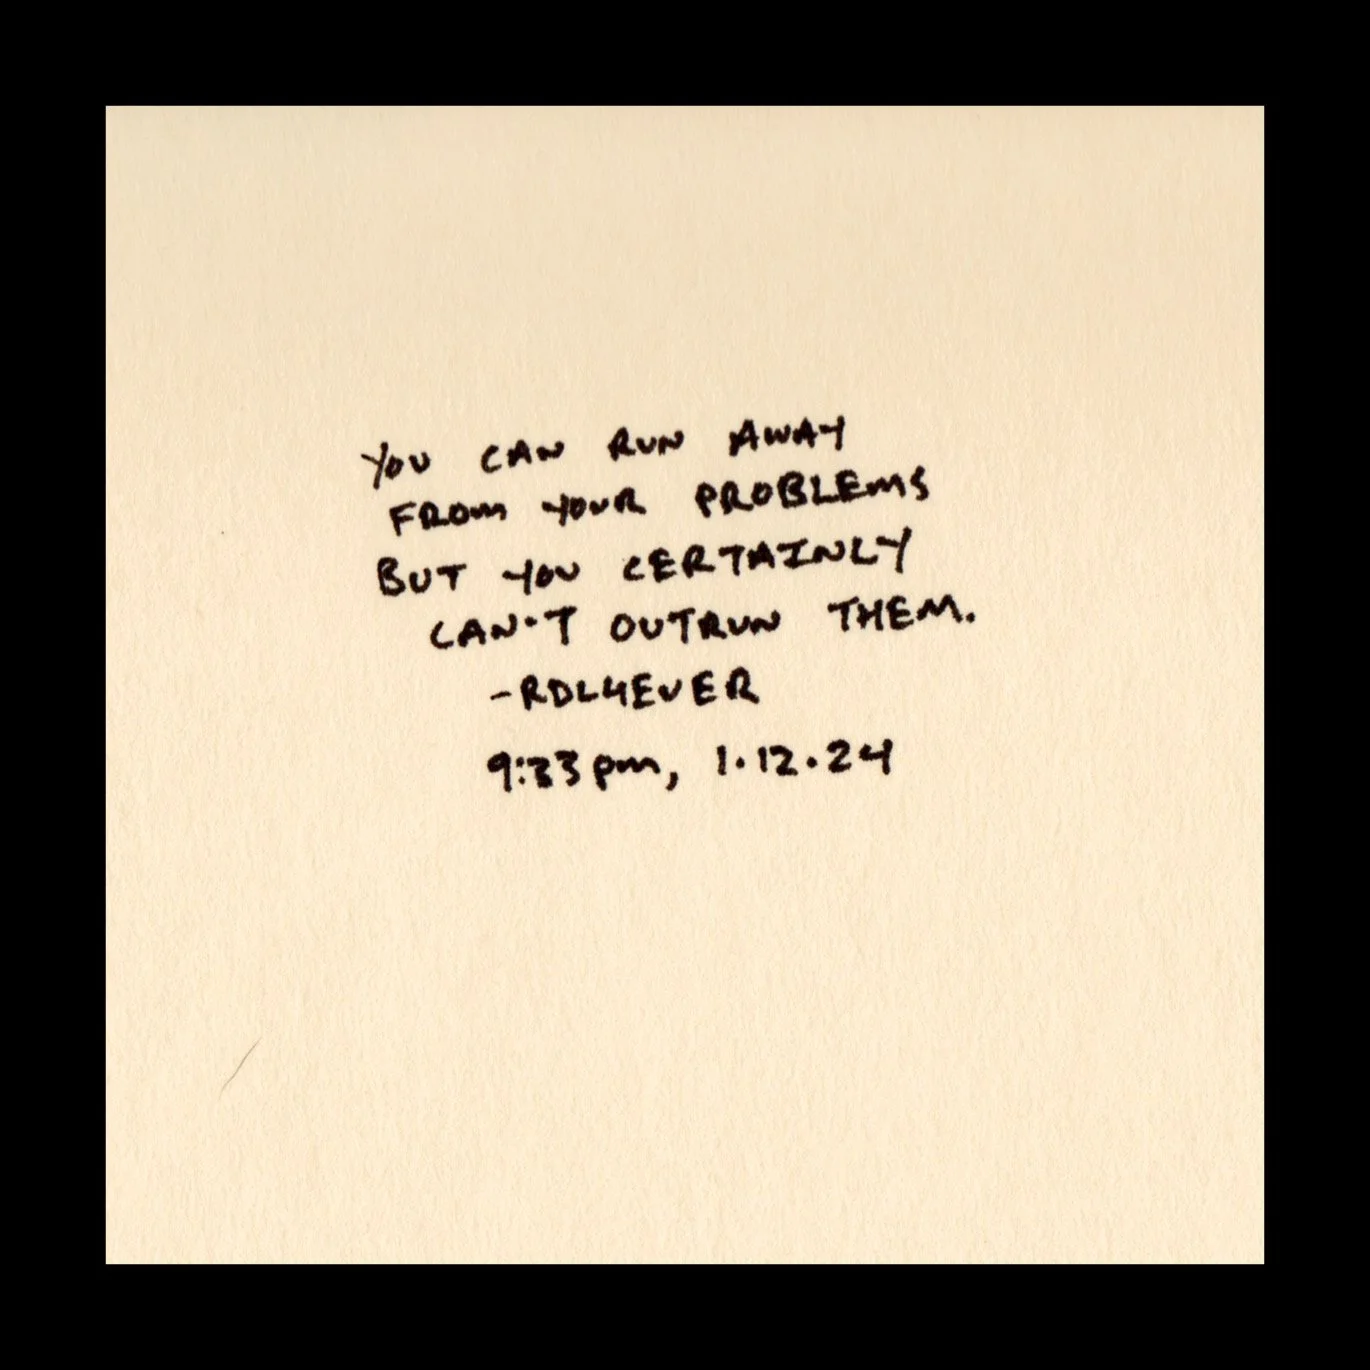 YOU CAN RUN AWAY
FROM YOUR PROBLEMS
BUT YOU CERTAINLY
CAN'T OUTRUN THEM.
-RDL4EVER
9:33pm, 1.12.24